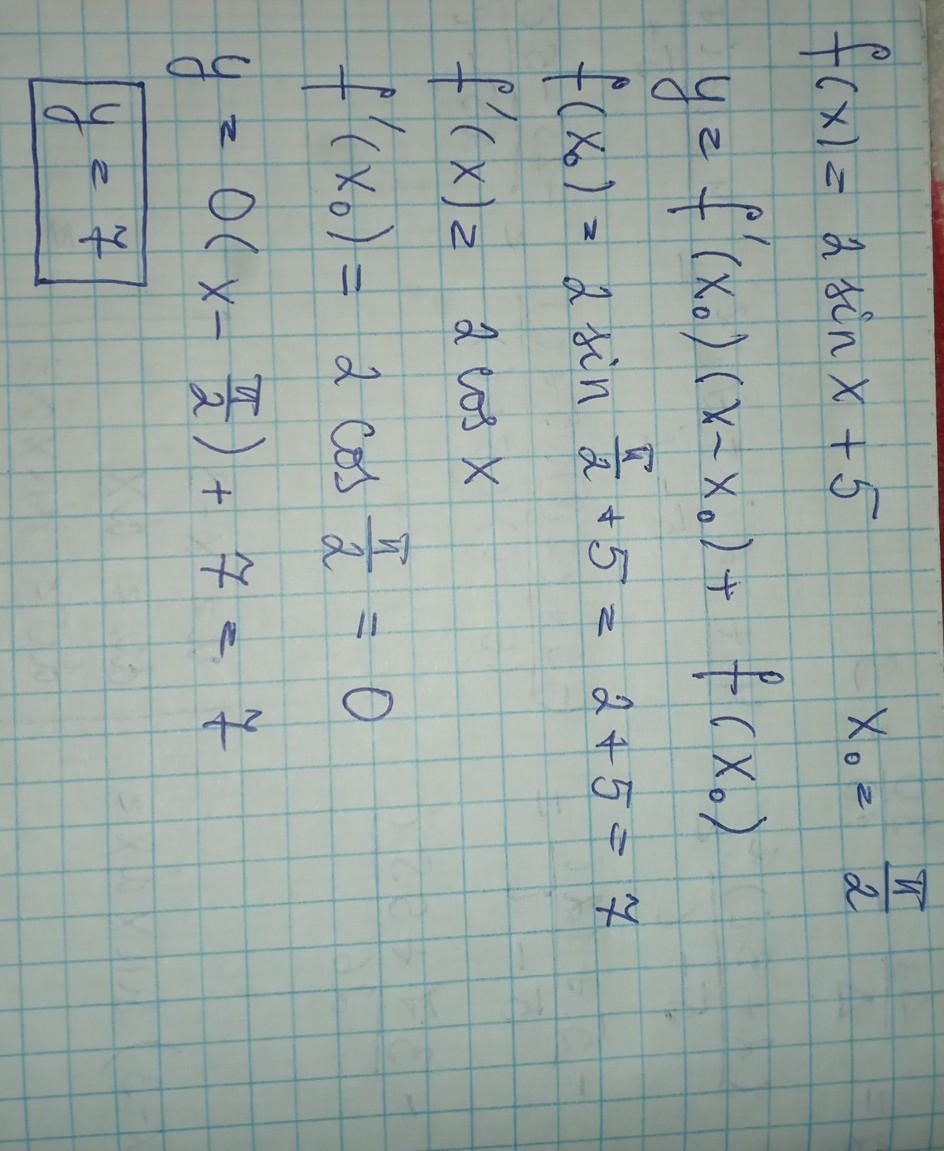 f(x) = 2 sin x + 5 x₀ = π/2
y = f'(x₀)(x - x₀) + f(x₀)
f(x₀) = 2 sin π/2 + 5 = 2 + 5 = 7
f'(x) = 2 cos x
f'(x₀) = 2 cos π/2 = 0
y = 0(x - π/2) + 7 = 7
y = 7